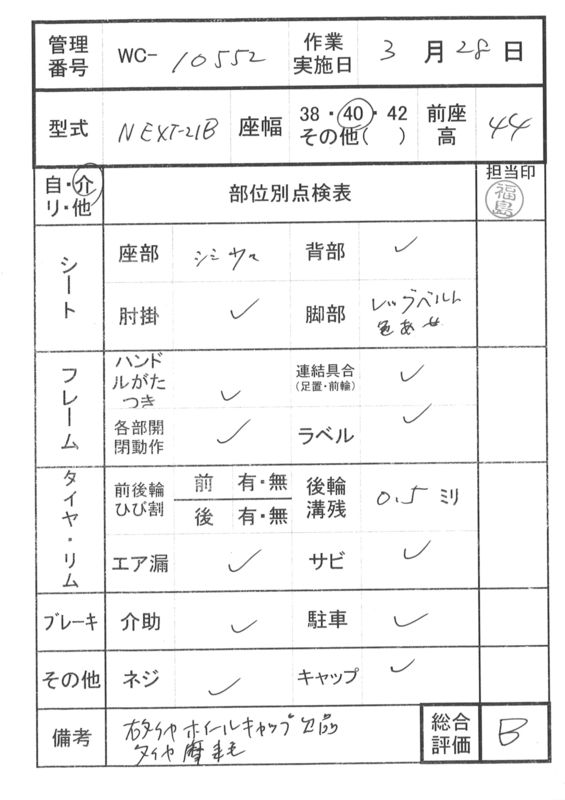 管理番号 WC-10552 作業実施日 3月28日
型式 NEXT-21B 座幅 38・40・42 その他( ) 前座高 44
自・介 リ・他 部位別点検表 担当印 福島
シート 座部 背部 ✓
肘掛 ✓ 脚部 レッグベルト色あせ
フレーム ハンドルがたつき ✓ 連結具合(足置・前輪) ✓
各部開閉動作 ✓ ラベル ✓
タイヤ・リム 前後輪ひび割 前 有・無 後 有・無 後輪溝残 0.5 ミリ
エア漏 ✓ サビ ✓
ブレーキ 介助 ✓ 駐車 ✓
その他 ネジ ✓ キャップ ✓
備考 右タイヤホイールキャップ欠品
タイヤ摩耗
総合評価 B